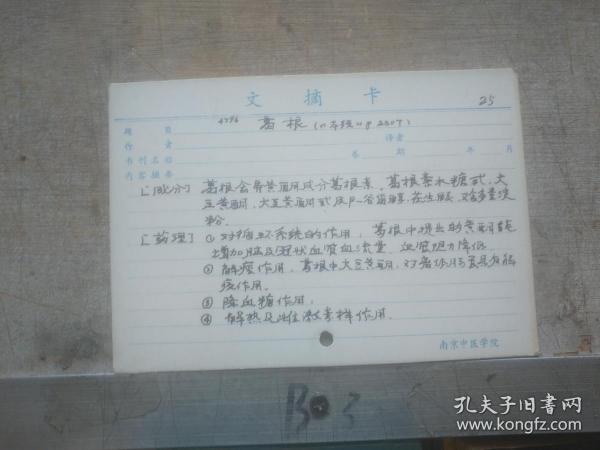 文摘卡
25
题目
4796 葛根
作者
译者
书刊名称
卷 期 年 月
内容摘要
[成分] 葛根含异黄酮成分葛根素、葛根素木糖甙、大
豆黄酮、大豆黄酮甙及β-谷甾醇、花生酸、又含多量淀
粉。
[药理] ① 对循环系统的作用，葛根中提出的黄酮能
增加脑及冠状血管血流量，血管阻力降低
② 解痉作用，葛根中大豆黄酮，对
痉作用。
③ 降血糖作用，
④ 解热及雌激素样作用.
南京中医学院
B 3
孔夫子旧书网
www.kongfz.com